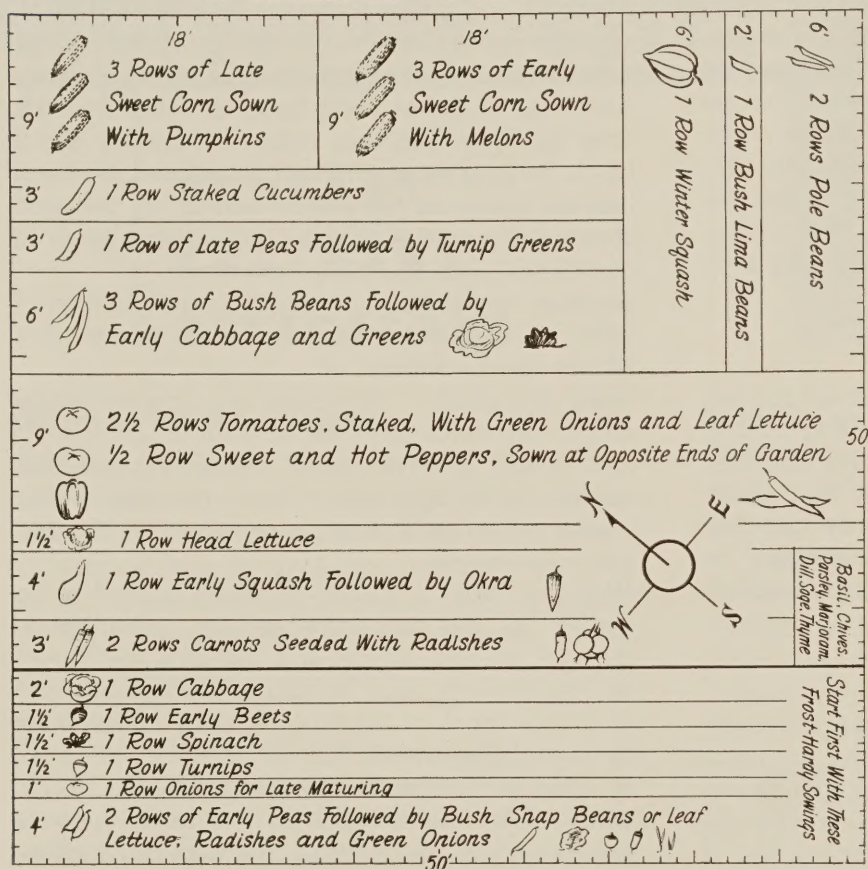 18'
3 Rows of Late
Sweet Corn Sown
With Pumpkins
9'
18'
3 Rows of Early
Sweet Corn Sown
With Melons
9'
6' 1 Row Winter Squash
2' 1 Row Bush Lima Beans
6' 2 Rows Pole Beans
3' 1 Row Staked Cucumbers
3' 1 Row of Late Peas Followed by Turnip Greens
6' 3 Rows of Bush Beans Followed by
Early Cabbage and Greens
9' 2½ Rows Tomatoes, Staked, With Green Onions and Leaf Lettuce
½ Row Sweet and Hot Peppers, Sown at Opposite Ends of Garden
50'
1½' 1 Row Head Lettuce
4' 1 Row Early Squash Followed by Okra
3' 2 Rows Carrots Seeded With Radishes
N
E
W
S
Basil, Chives,
Parsley, Marjoram,
Dill, Sage, Thyme
2' 1 Row Cabbage
1½' 1 Row Early Beets
1½' 1 Row Spinach
1½' 1 Row Turnips
1' 1 Row Onions for Late Maturing
4' 2 Rows of Early Peas Followed by Bush Snap Beans or Leaf
Lettuce, Radishes and Green Onions
Start First With These
Frost-Hardy Sowings
50'